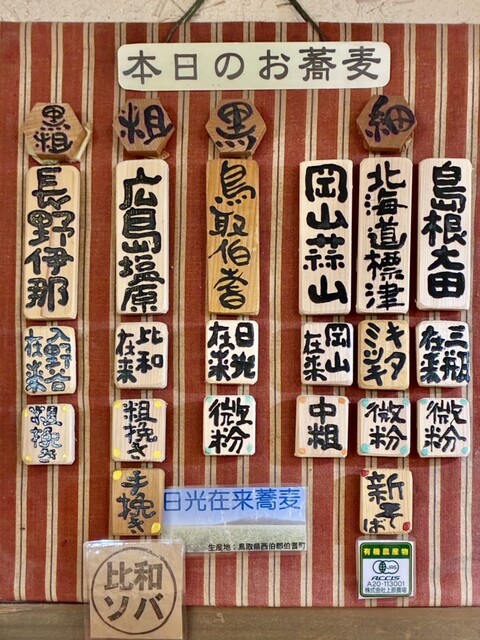 本日のお蕎麦
細
島根大田
三瓶在来
微粉
北海道標津
キタミツキ
微粉
新そば
岡山蒜山
岡山在来
中粗
黒
鳥取伯耆
日光在来
微粉
粗
広島塩原
比和在来
粗挽き
手挽き
黒粗
長野伊那
入野谷在来
粗挽き
日光在来蕎麦
生産地：鳥取県西伯郡伯耆町
比和
ソバ
有機農産物
JAS
ACCIS
A20-113001
株式会社上原農場